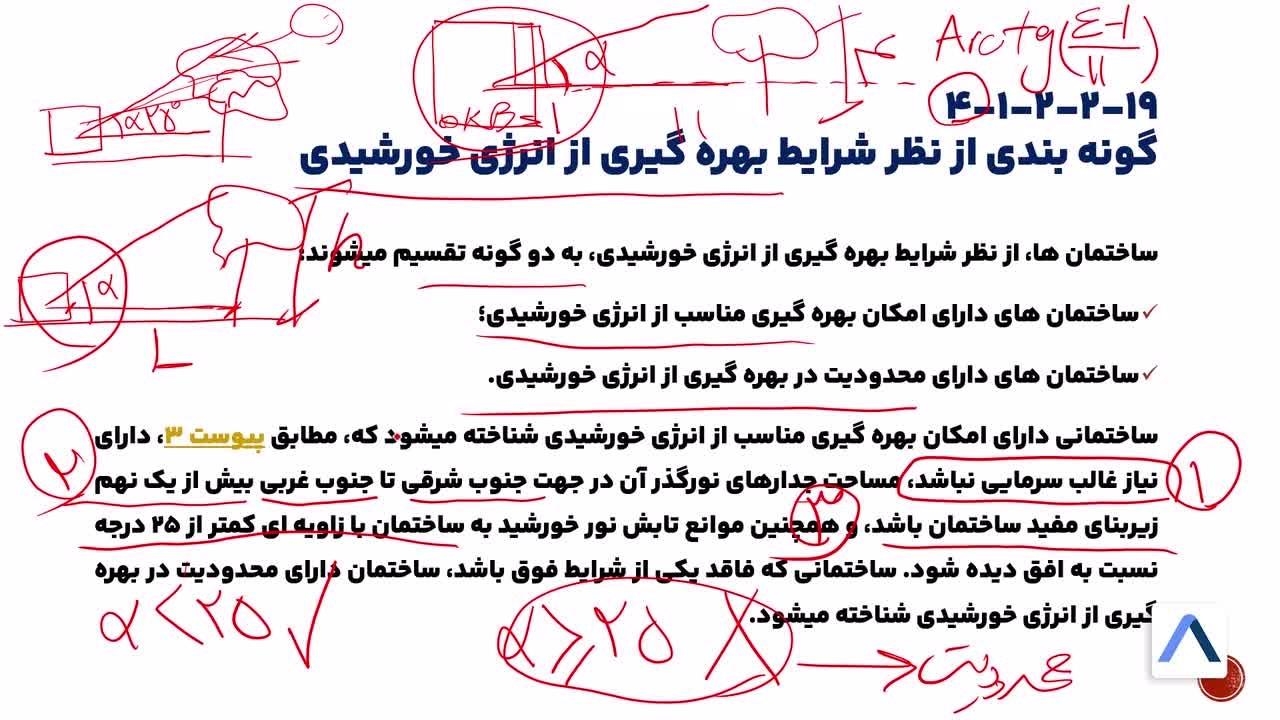 Arctg(۴-۱/۱۱)
۱۹-۲-۲-۱-۴
گونه بندی از نظر شرایط بهره گیری از انرژی خورشیدی
ساختمان ها، از نظر شرایط بهره گیری از انرژی خورشیدی، به دو گونه تقسیم میشوند:
✓ساختمان های دارای امکان بهره گیری مناسب از انرژی خورشیدی؛
✓ساختمان های دارای محدودیت در بهره گیری از انرژی خورشیدی.
ساختمانی دارای امکان بهره گیری مناسب از انرژی خورشیدی شناخته میشود که، مطابق پیوست ۳، دارای
نیاز غالب سرمایی نباشد، مساحت جدارهای نورگذر آن در جهت جنوب شرقی تا جنوب غربی بیش از یک نهم
زیربنای مفید ساختمان باشد، و همچنین موانع تابش نور خورشید به ساختمان با زاویه ای کمتر از ۲۵ درجه
نسبت به افق دیده شود. ساختمانی که فاقد یکی از شرایط فوق باشد، ساختمان دارای محدودیت در بهره
گیری از انرژی خورشیدی شناخته میشود.
α
۱
۱۱
α
h
L
۱
۲
۳
α < ۲۵ ✓
α ≥ ۲۵ X
محدودیت